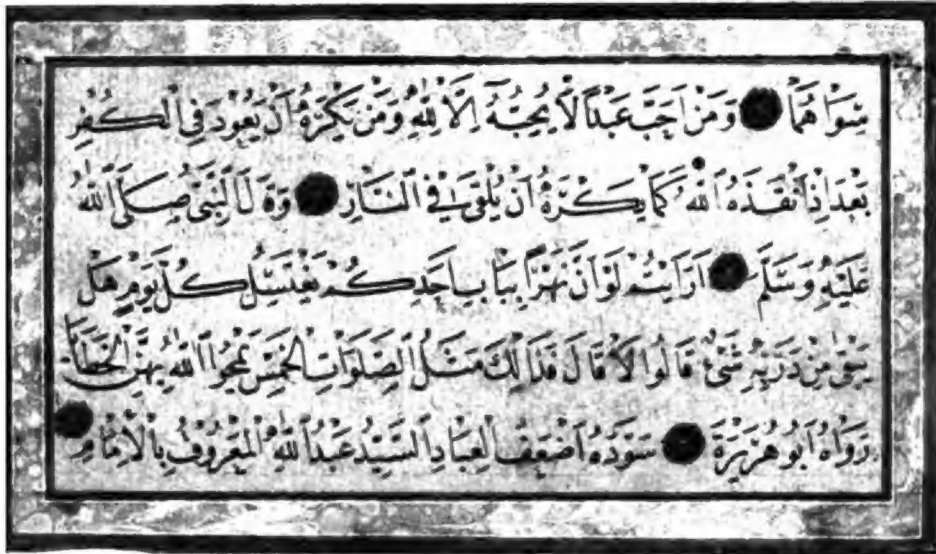 سِوَاهُمَا وَمَنْ اَحَبَّ عَبْدًا لَا يُحِبُّهُ اِلَّا لِلّٰهِ وَمَنْ يَكْرَهُ اَنْ يَعُوْدَ فِي الْكُفْرِ
بَعْدَ اِذْ اَنْقَذَهُ اللهُ كَمَا يَكْرَهُ اَنْ يُلْقٰى فِي النَّارِ وَقَالَ النَّبِيُّ صَلَّى اللهُ
عَلَيْهِ وَسَلَّمَ اَرَاَيْتُمْ لَوْ اَنَّ نَهْرًا بِبَابِ اَحَدِكُمْ يَغْتَسِلُ كُلَّ يَوْمٍ هَلْ
يَبْقٰى مِنْ دَرَنِهِ شَيْءٌ قَالُوا لَا قَالَ فَذَالِكَ مَثَلُ الصَّلَوَاتِ الْخَمْسِ يَمْحُوا اللهُ بِهِنَّ الْخَطَايَا
رَوَاهُ اَبُو هُرَيْرَةَ سَوَّدَهُ اَضْعَفُ الْعِبَادِ السَّيِّدُ عَبْدُ اللهِ الْمَعْرُوفُ بِالْاِمَامِ